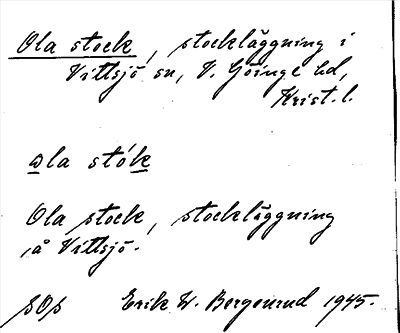 Ola stock, stockläggning i
Vittsjö sn, V. Göinge hd,
Krist. l.
ɷla stók
Ola stock, stockläggning
å Vittsjö.
sOs
Erik W. Bergenrud 1945.